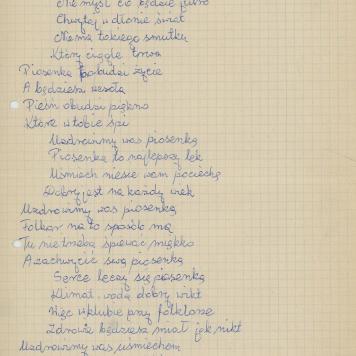 Nie myśl co będzie jutro
Chwytaj w dłonie świat
Nie ma takiego smutku
Który ciągle trwa
Piosenka pobudzi życie
A będziesz wesoła
Pieśń obudzi piękno
Które w tobie śpi
Uzdrowimy was piosenką
Piosenka to najlepszy lek
Uśmiech niesie wam pociechę
Dobry jest na każdy wiek
Uzdrowimy was piosenką
Folklor na to sposób ma
Tu nie trzeba śpiewać miękko
A zachwycić swą piosenką
Serce leczy się piosenką
Klimat, woda dobry wikt
Więc w klubie przy folklorze
Zdrowie będziesz miał jak nikt
Uzdrowimy was uśmiechem